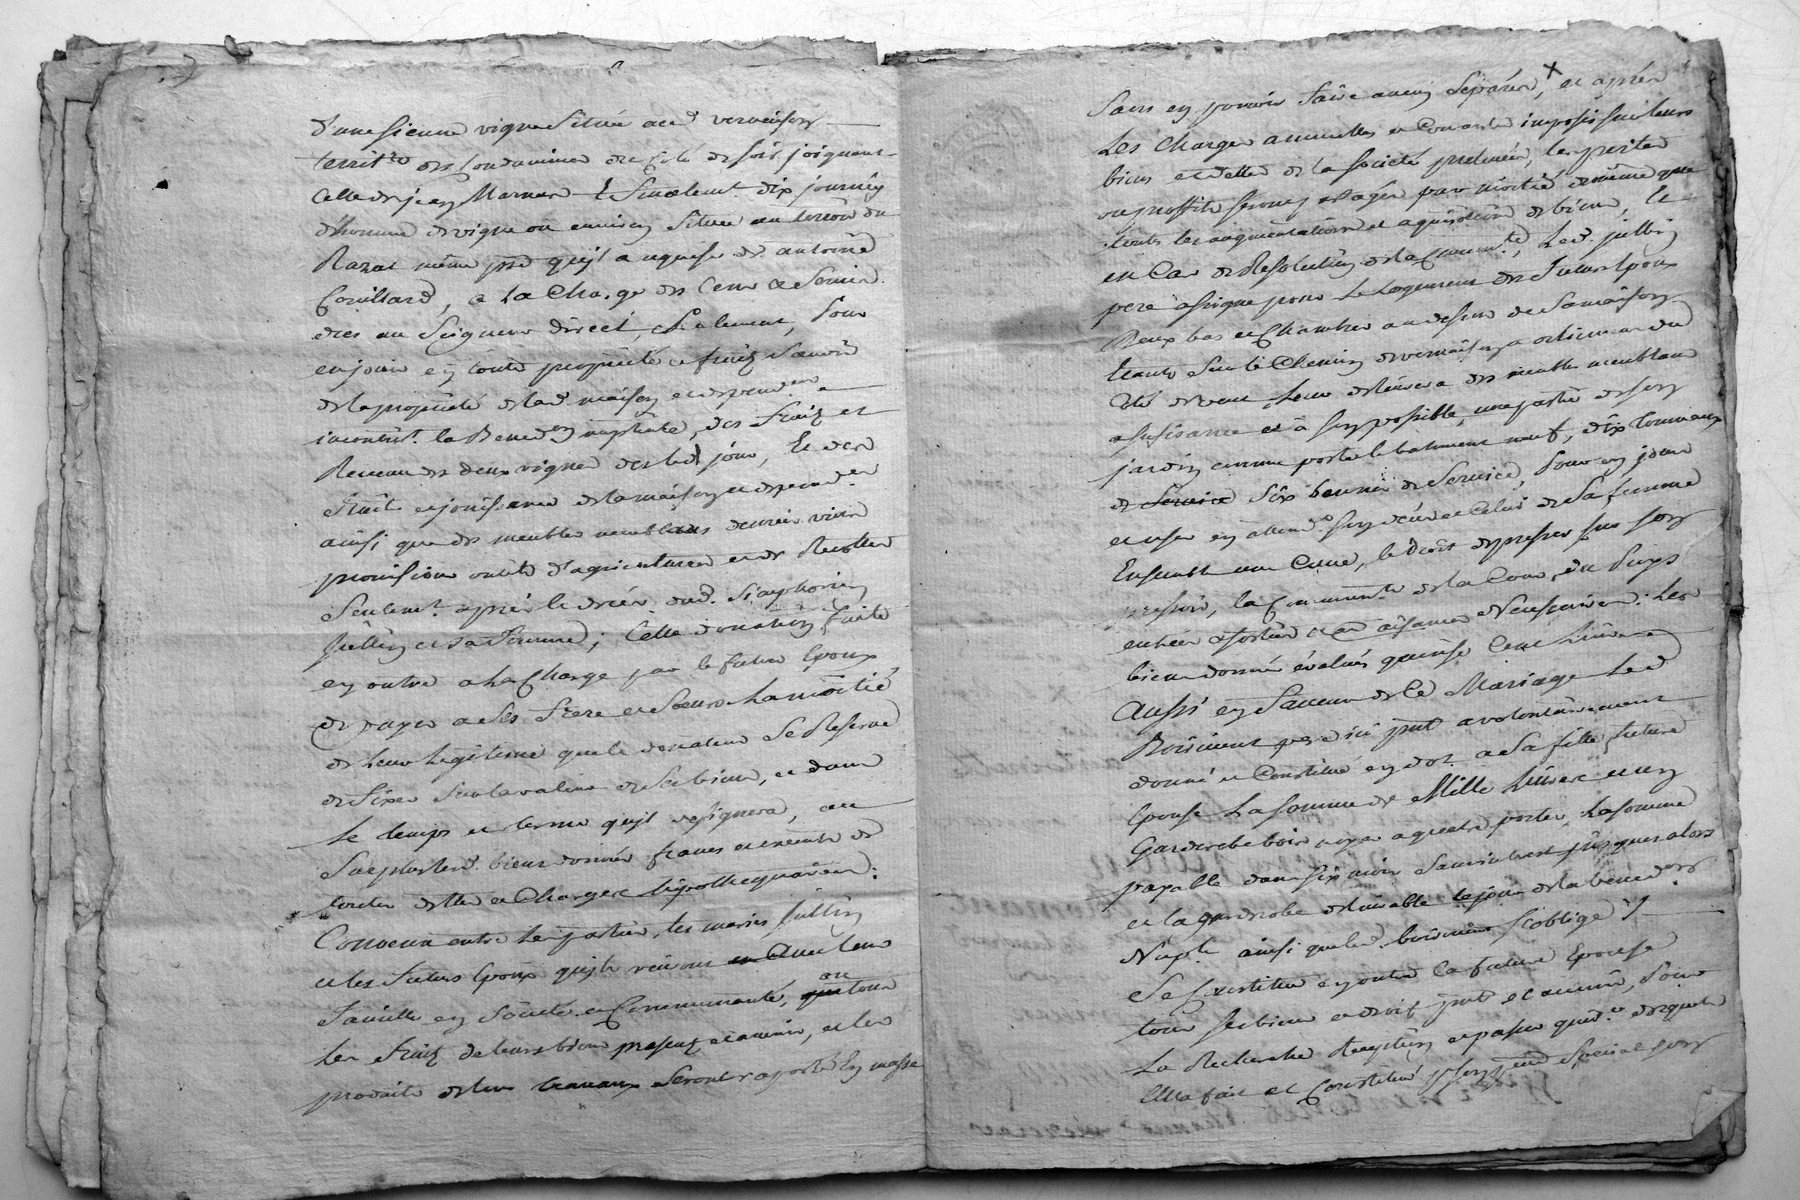 d'une sienne vigne située aud. vernaison
territ.re des Condamines de cote de soir joignant
Celle de jean Marnas & finalemt. dix journés
d'homme de vigne ou environ située au terroir du
Razat même psse qu'il a aquise de antoine
Couillard, a la charge des cens & servis
dies au seigneur direct, seulement, pour
en jouir en toute propriété et fruitz savoir
de la propriété de lad. maison et depend.ces
incontint. la Bened.on nuptiale, des fruitz et
Revenu des deux vignes des led. jour, Et des
fruits et jouissance de la maison et depend.ces
ainsi que des meubles meublans denrées vivres
provisions outils d'agriculture et de Recoltes
seulemt. après le décès dud. Siaphorien
Jullien et sa femme; Cette donation faite
en outre a la charge par le futur Epoux
de payer a ses frere et Sœurs La moitié
de leur Légitime que le donateur se Reserve
de fixer sur la valeur de ses biens, et dans
le temps et terme qu'il designera, au
surplus lesd. biens donnés francs et exempts de
toutes dettes et Charges hipothequaires:
Convenu entre les parties, les mariés Jullien
et les futurs Epoux qu'ils vivront avec leur
famille en société et Communauté, ou tous
les fruitz de leurs biens presents et avenir, et les
produits de leurs travaux seront raportés En masse
sans en pouvoir faire aucun Séparer, et après
Les charges annuelles et Courantes imposés sur leurs
biens et dettes de la société prelevées, les pertes
ou proffits seront partagés par moitié de même que
touts les augmentations et aquisitions de biens, Et
en Cas de Resolution de la Commun.té, Led. jullien
pere assigne pour Le Logement des futurs Epoux
deux bas et Chambres au dessus de sa maison
tirants sur le Chemin de vernaison a orliennas du
coté de vent, leur delivrera des meubles meublans
a sufisance et à son possible, une partie de son
jardin comme porte le batiment neuf, dix tonneaux
de six bennes de service, pour en jouir
et user en attend.t son décès et Celui de sa femme
Ensemble une Cuve, le droit de presser sur son
pressoir, la Commun.té de la Cour, du puys
entrées & sorties et aisances Necessaires: Les
biens donnés évalués quinse Cent livres
Aussi en faveur de Ce Mariage Led.
Boiriment pere ici psnt a volontairement
donné et Constitué en dot a sa fille future
Epouse La somme de Mille livres et un
Garderobe bois noyer a quatre portes, La somme
payable dans six mois sans interet jusques alors
et la garderobe delivrable le jour de la bened.on
Nup.le ainsi que led. boiriment s'oblige
Se Constitue en outre la future Epouse
tous ses biens et droits psnts et avenir, pour
La Recherche desquels et passer quitt.ce desquels
Elle a fait et Constitué